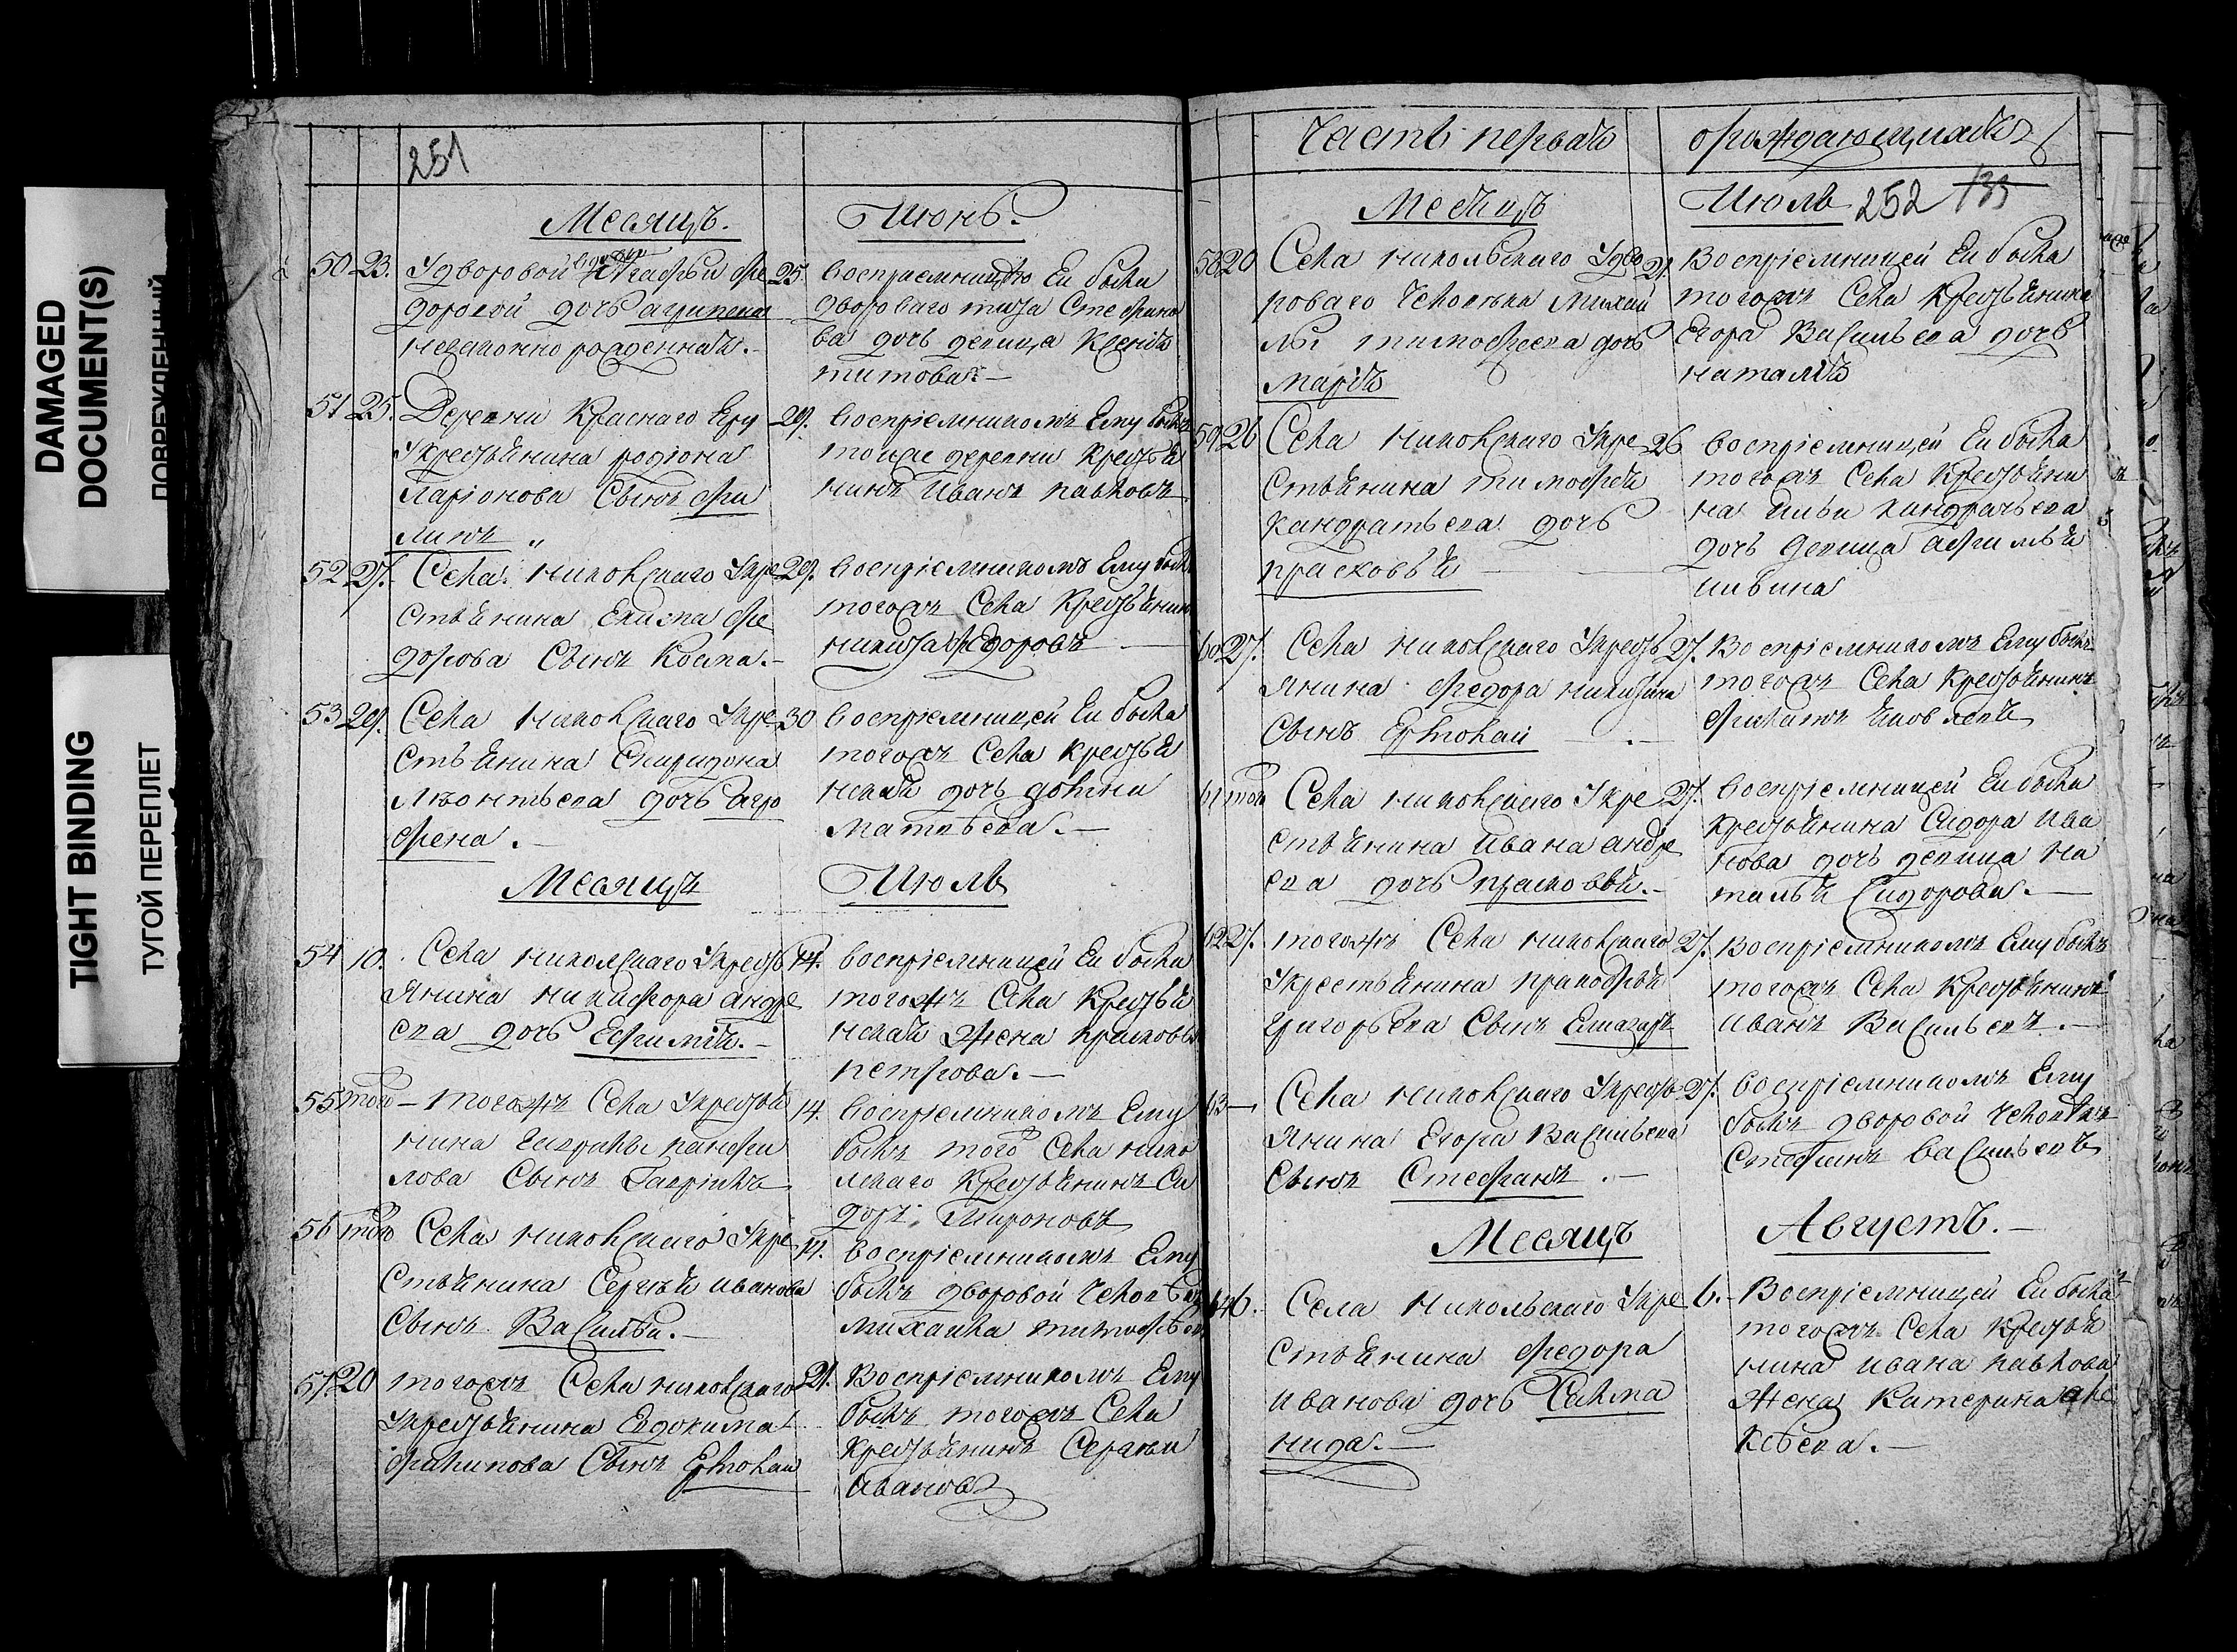 DAMAGED
DOCUMENT(S)
TIGHT BINDING
ТУГОЙ ПЕРЕПЛЕТ
251
Месяцъ. Июнь.
50 23. Удворовой вдовы Агафьи Фе
доровой дочь агрипена
незаконно рожденная.
25. восприемницею Ей была
двороваго тита Стефано
ва дочь девица Ксенія
титова.
51 25. Деревни Краснаго Яру
Укрестьянина родіона
Ларіонова Сынъ Фи
липъ
29. воспріемникомъ Ему былъ
тойже деревни крестья
нинъ Иванъ павловъ
52 27. Села николскаго Укре
стьянина Екима Фе
дорова Сынъ Косма.
29. воспріемникомъ Ему былъ
тогожъ Села Крестьянинъ
никита Федоровъ
53 29. Села николскаго Укре
стьянина Спиридона
Леонтьева дочь агро
фена.
30 воспріемницей Ей была
тогожъ Села крестья
нская дочь
матвѣева.
Месяцъ Июль
54 10. Села николскаго Укресть
янина никифора андре
ева дочь Ефимія.
14. воспріемницей Ей была
тогожъ Села Крестья
нская жена прасковья
петрова.
55 того тогожъ Села Укрестья
нина Гаврилы панфи
лова Сынъ Гавріилъ
14. воспріемникомъ Ему
былъ того Села нико
лскаго Крестьянинъ Си
доръ Мироновъ
56 того Села николскаго Укре
стьянина Сергѣя иванова
Сынъ Василей.
14. воспріемникомъ Ему
былъ дворовой человѣкъ
михайла тимофѣевъ
57 20 тогожъ Села николскаго
Укрестьянина Евдокима
Филипова Сынъ Ермолай
21. Воспріемникомъ Ему
былъ тогожъ Села
крестьянинъ Сергѣй
Ивановъ
Часть первая о рождающихся
Месяцъ Июль 252 133
58 20 Села никольскаго Удво
роваго человѣка Михай
лы тимофеева дочь
Марія
21. Воспріемницей Ей была
тогожъ Села крестьянина
Егора Васильева дочь
наталія
59 26 Села николскаго Укре
стьянина тимофея
кандратьева дочь
прасковья
26 воспріемницей Ей была
тогожъ Села Крестьяни
на ильи кандратьева
дочь девица афимья
ильина
60 27. Села николскаго Укресть
янина Федора никитина
Сынъ Ермолай
27. Воспріемникомъ Ему былъ
тогожъ Села Крестьянинъ
Филатъ Яковлевъ
61 того Села николскаго Укре
стьянина Ивана андре
ева дочь прасковья.
27. воспріемницей Ей была
крестьянина Сидора Ива
нова дочь девица на
талья Сидорова.
62 27. тогожъ Села николскаго
Укрестьянина Прокофья
григорьева Сынъ Елиазаръ
27. Воспріемникомъ Ему былъ
тогожъ Села Крестьянинъ
иванъ Васильевъ.
63 Села николскаго Укресть
янина Егора Васильева
Сынъ Стефанъ.
27. воспріемникомъ Ему
былъ дворовой человѣкъ
Стефанъ васильевъ
Месяцъ Августъ.
64 6. Села никольскаго Укре
стьянина Федора
иванова дочь Саломо
нида.
6. Воспріемницей Ей была
тогожъ Села Крестья
нина ивана павлова
жена Катерина але
ксѣева.